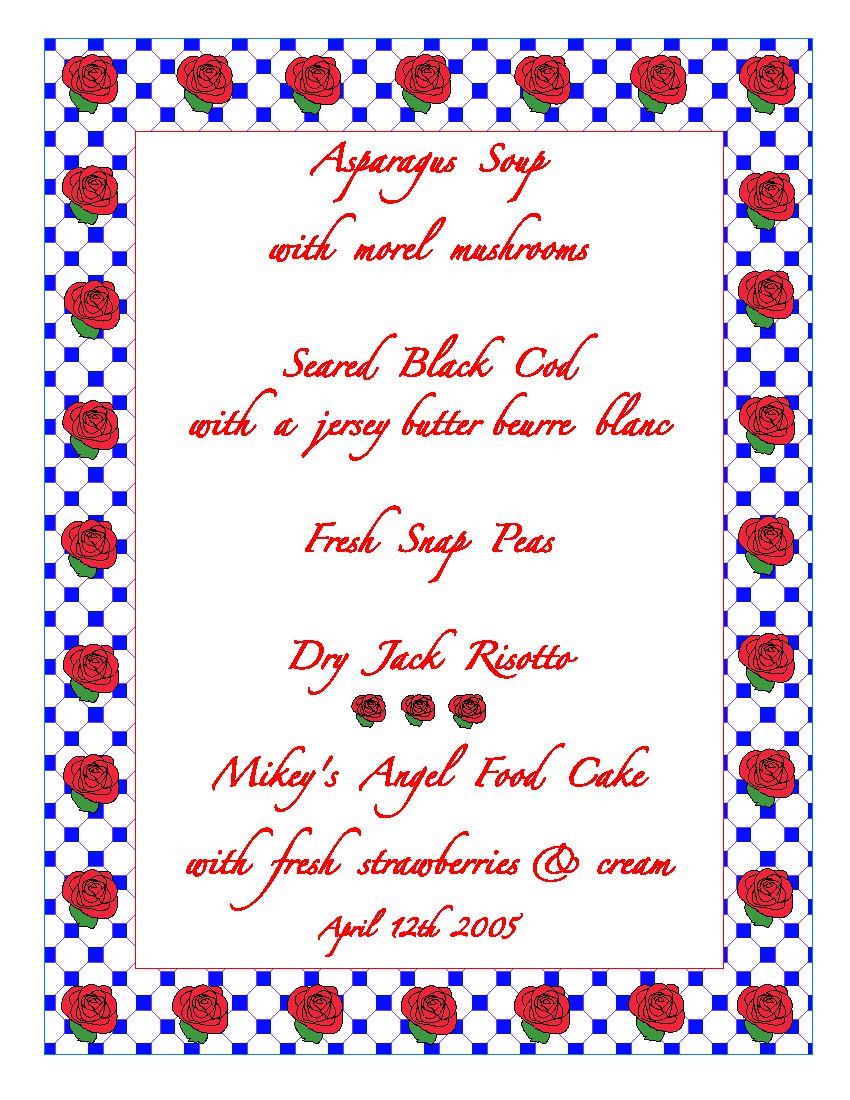 Asparagus Soup
with morel mushrooms
Seared Black Cod
with a jersey butter beurre blanc
Fresh Snap Peas
Dry Jack Risotto
Mikey's Angel Food Cake
with fresh strawberries & cream
April 12th 2005